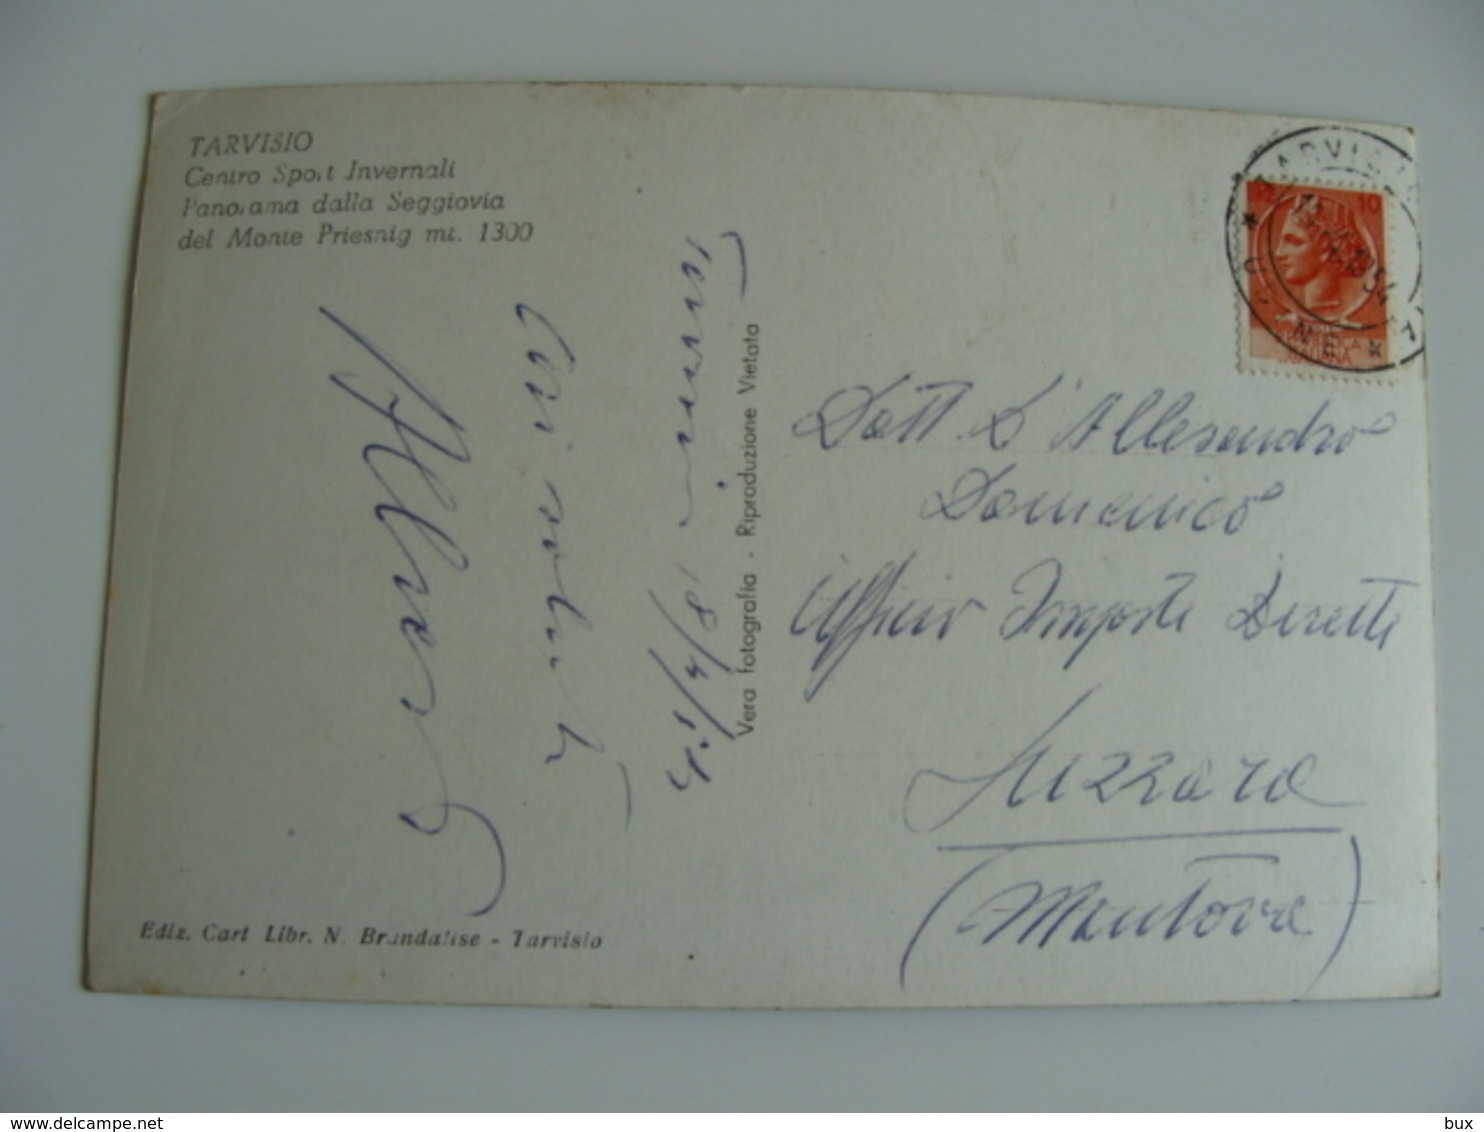 TARVISIO
Centro Sport Invernali
Panorama dalla Seggiovia
del Monte Priesnig mt. 1300
Tarvisio 18/4/54
Cari saluti
Vera Fotografia - Riproduzione Vietata
Ediz. Cart Libr. N. Brandalise - Tarvisio
TARVISIO
10
ITALIANA
Dott. D'Allesandro
Domenico
Ufficio Imposte Dirette
Suzzara
(Mantova)
www.delcampe.net
bux